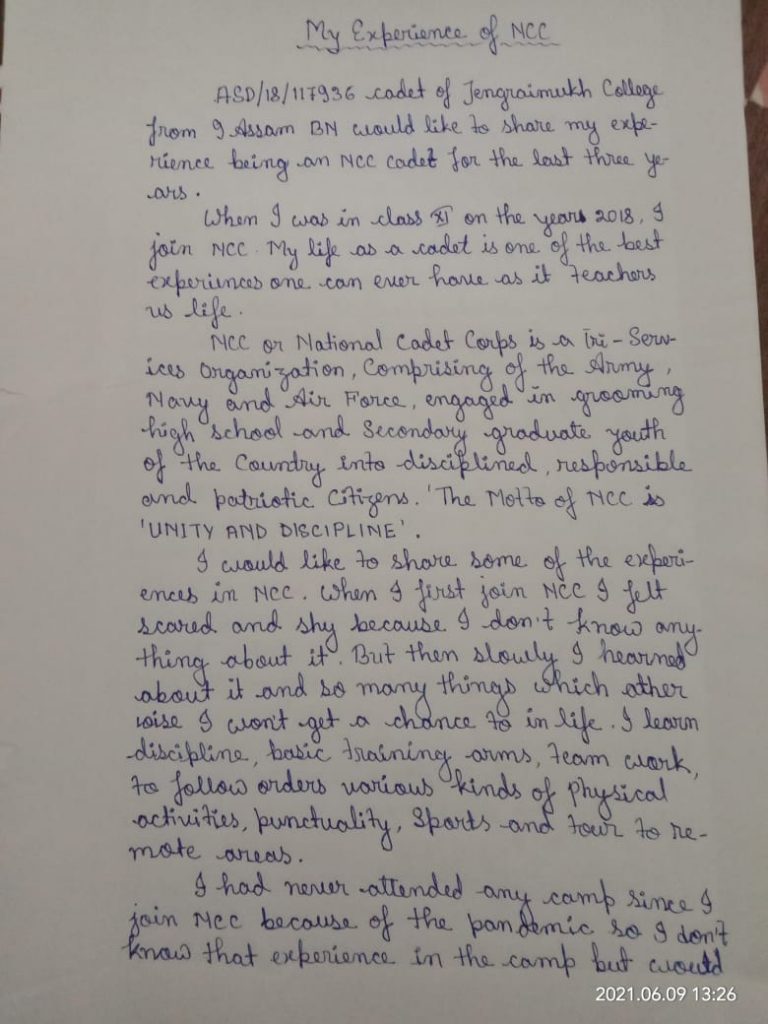 My Experience of NCC
ASD/18/117936 cadet of Jengraimukh College
from 9 Assam BN would like to share my expe-
rience being an NCC cadet for the last three ye-
ars.
When I was in class XI on the years 2018, I
join NCC. My life as a cadet is one of the best
experiences one can ever have as it teachers
us life.
NCC or National Cadet Corps is a Tri-Serv-
ices Organization, Comprising of the Army,
Navy and Air Force, engaged in grooming
high school and Secondary graduate youth
of the Country into disciplined, responsible
and patriotic Citizens. 'The Motto of NCC is
'UNITY AND DISCIPLINE'.
I would like to share some of the experi-
ences in NCC. When I first join NCC I felt
scared and shy because I don't know any-
thing about it. But then slowly I hearned
about it and so many things which other
wise I won't get a chance to in life. I learn
discipline, basic training arms, team work,
to follow orders various kinds of physical
activities, punctuality, Sports and tour to re-
mote areas.
I had never attended any camp since I
join NCC because of the pandemic so I don't
know that experience in the camp but would
2021.06.09 13:26